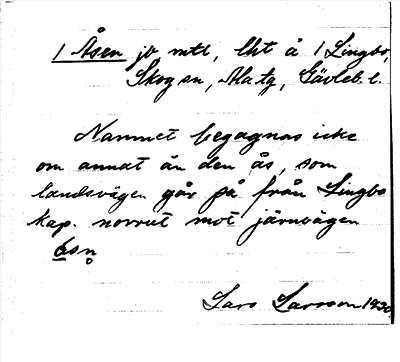 1 Åsen jb mtl, lht å 1 Lingbo,
Skog sn, Ala tg, Gävleb. l.
Namnet begagnas icke
om annat än den ås, som
landsvägen går på från Lingbo
kap. norrut mot järnvägen
Lars Larsson 1930